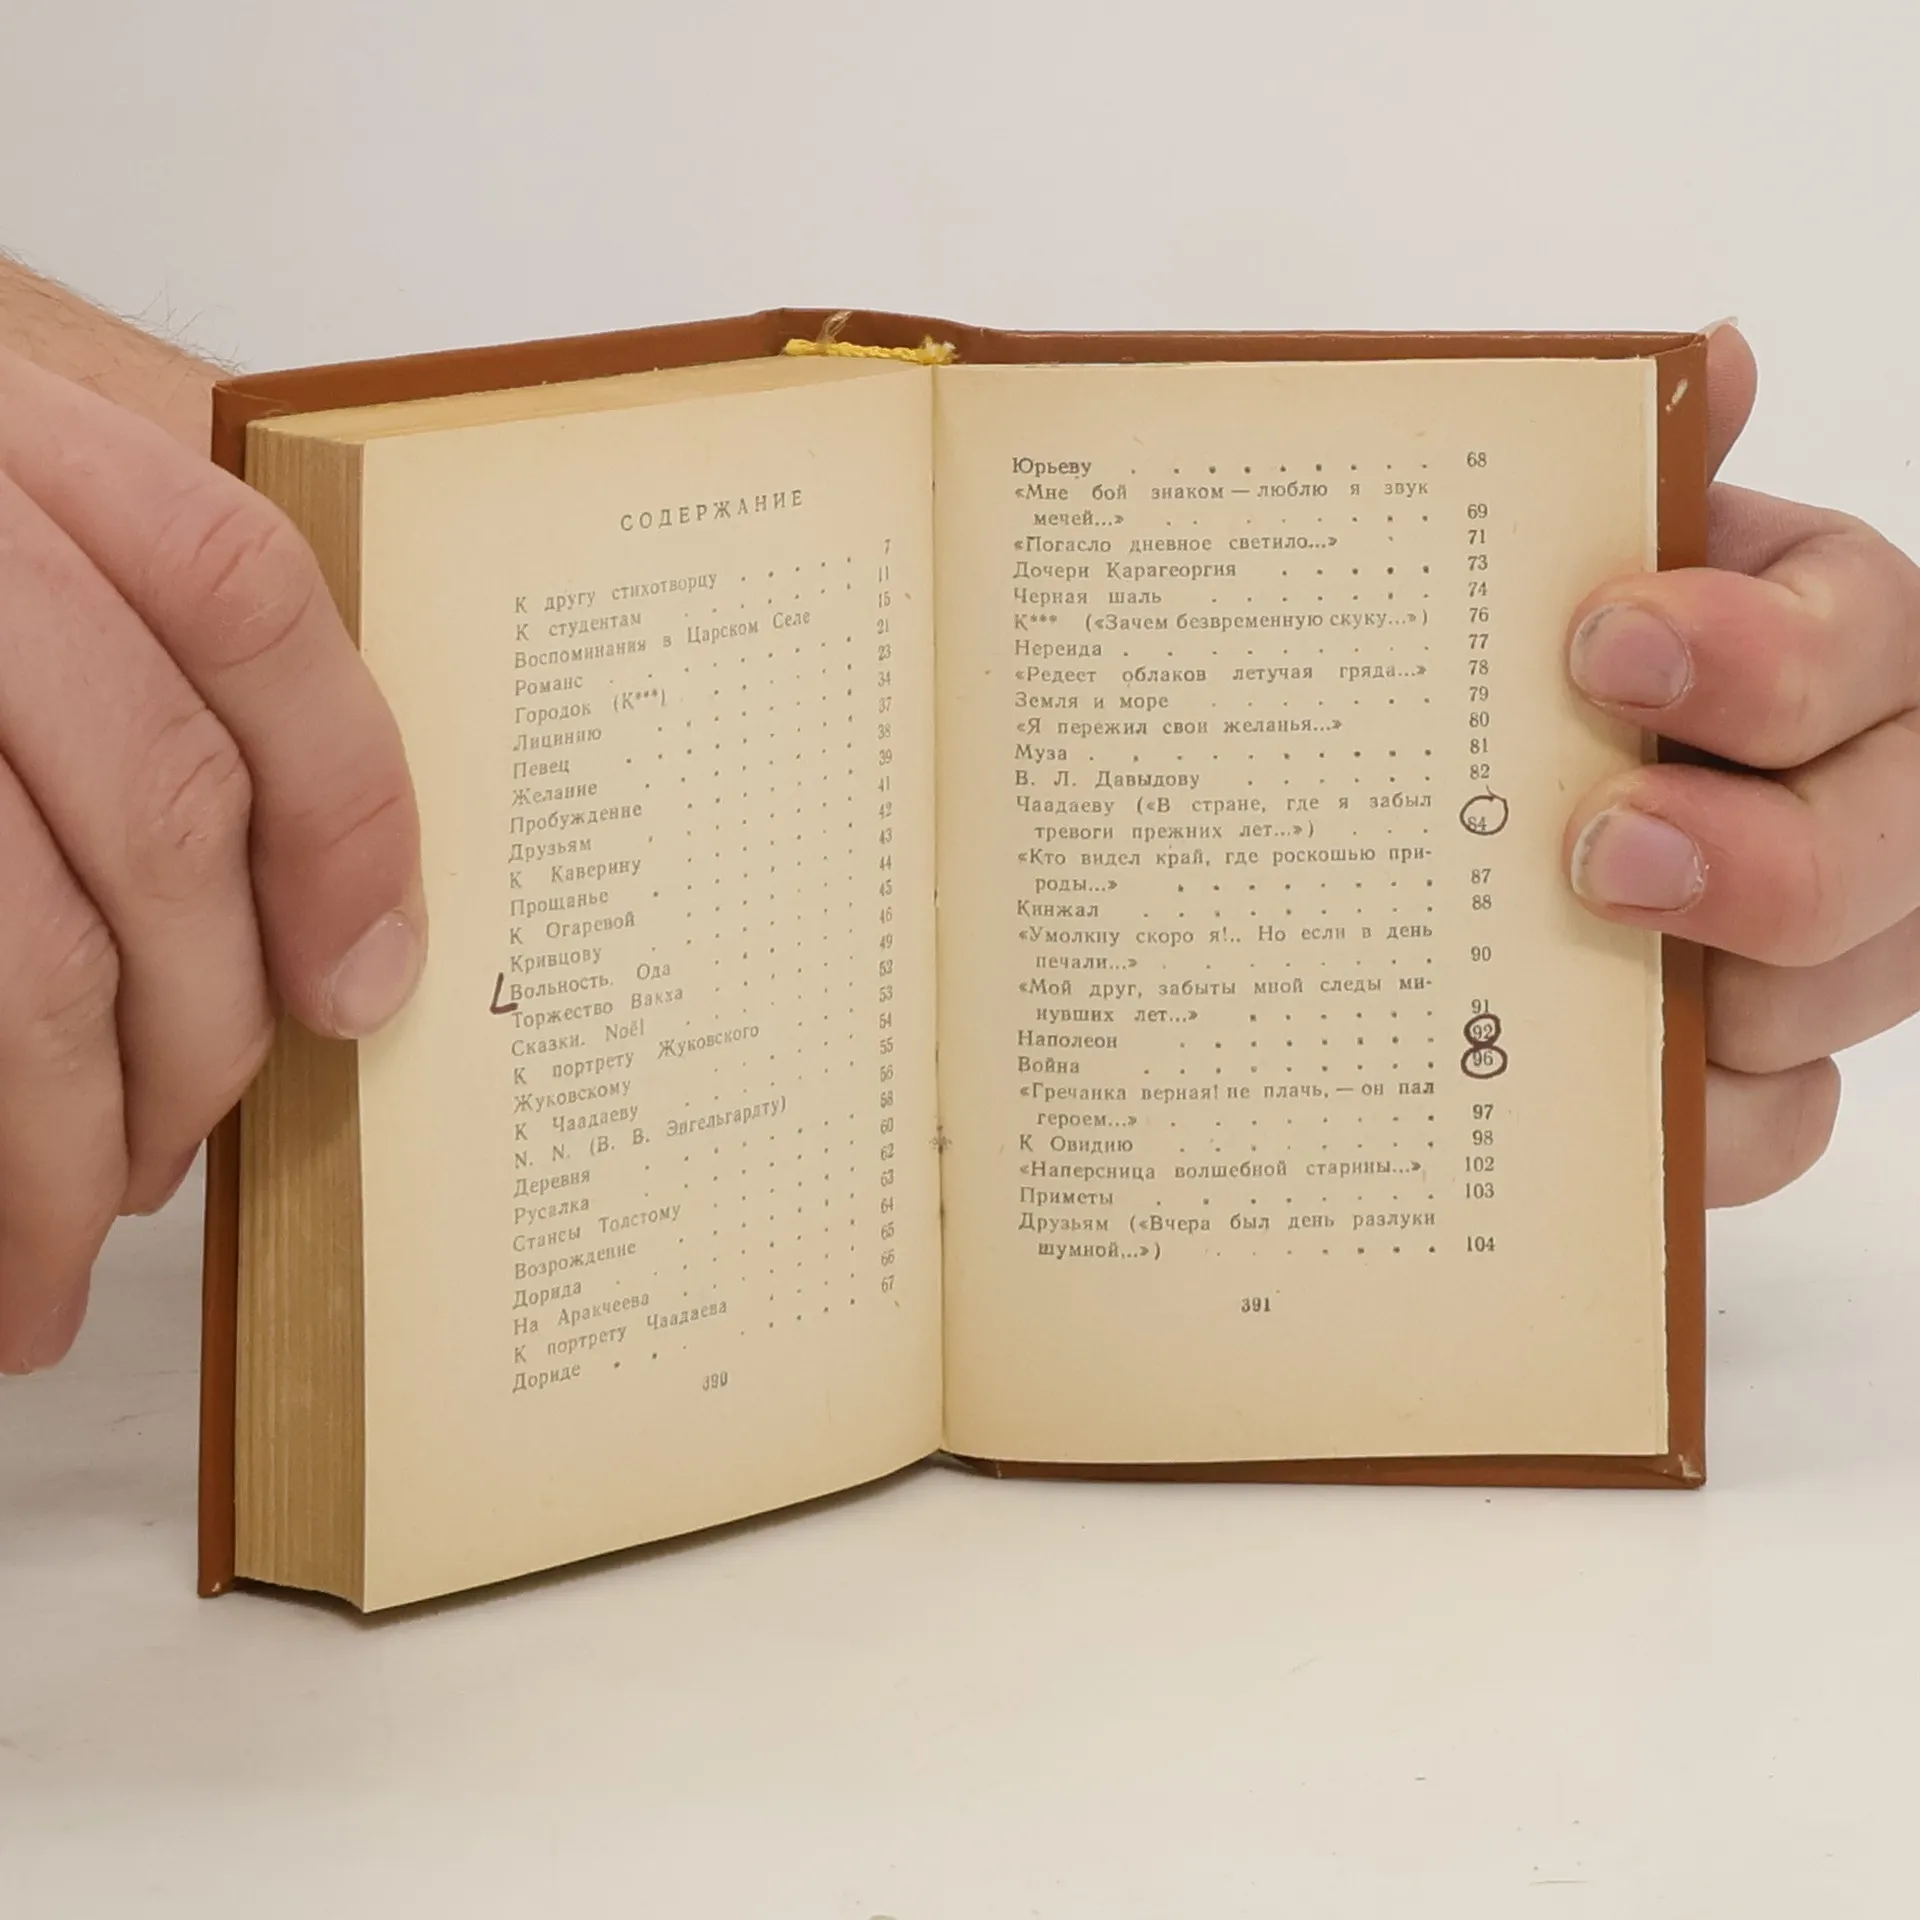 СОДЕРЖАНИЕ
К другу стихотворцу . . . . . 7
К студентам . . . . . . 11
Воспоминания в Царском Селе 15
Романс . . . . . . . 21
Городок (К***) . . . . . . 23
Лицинию . . . . . . 34
Певец . . . . . . . 37
Желание . . . . . . 38
Пробуждение . . . . . 39
Друзьям . . . . . . 41
К Каверину . . . . . 42
Прощанье . . . . . . 43
К Огаревой . . . . . 44
Кривцову . . . . . . 45
Вольность. Ода . . . . . 46
Торжество Вакха . . . . . 49
Сказки. Noël . . . . . 52
К портрету Жуковского . . . 53
Жуковскому . . . . . 54
К Чаадаеву . . . . . 55
N. N. (В. В. Энгельгардту) 56
Деревня . . . . . . 58
Русалка . . . . . . 60
Стансы Толстому . . . . . 62
Возрождение . . . . . 63
Дорида . . . . . . . 64
На Аракчеева . . . . . 65
К портрету Чаадаева . . . 66
Дориде . . . . . . . 67
390
Юрьеву . . . . . . . . . 68
«Мне бой знаком — люблю я звук
мечей...» . . . . . . . . 69
«Погасло дневное светило...» . 71
Дочери Карагеоргия . . . . . 73
Черная шаль . . . . . . . 74
К*** («Зачем безвременную скуку...») 76
Нереида . . . . . . . . . 77
«Редеет облаков летучая гряда...» 78
Земля и море . . . . . . . 79
«Я пережил свои желанья...» 80
Муза . . . . . . . . . . 81
В. Л. Давыдову . . . . . . 82
Чаадаеву («В стране, где я забыл
тревоги прежних лет...») . . . 84
«Кто видел край, где роскошью при-
роды...» . . . . . . . . 87
Кинжал . . . . . . . . . 88
«Умолкну скоро я!.. Но если в день
печали...» . . . . . . . . 90
«Мой друг, забыты мной следы ми-
нувших лет...» . . . . . . 91
Наполеон . . . . . . . . 92
Война . . . . . . . . . 96
«Гречанка верная! не плачь, — он пал
героем...» . . . . . . . . 97
К Овидию . . . . . . . . 98
«Наперсница волшебной старины...» 102
Приметы . . . . . . . . 103
Друзьям («Вчера был день разлуки
шумной...») . . . . . . . 104
391